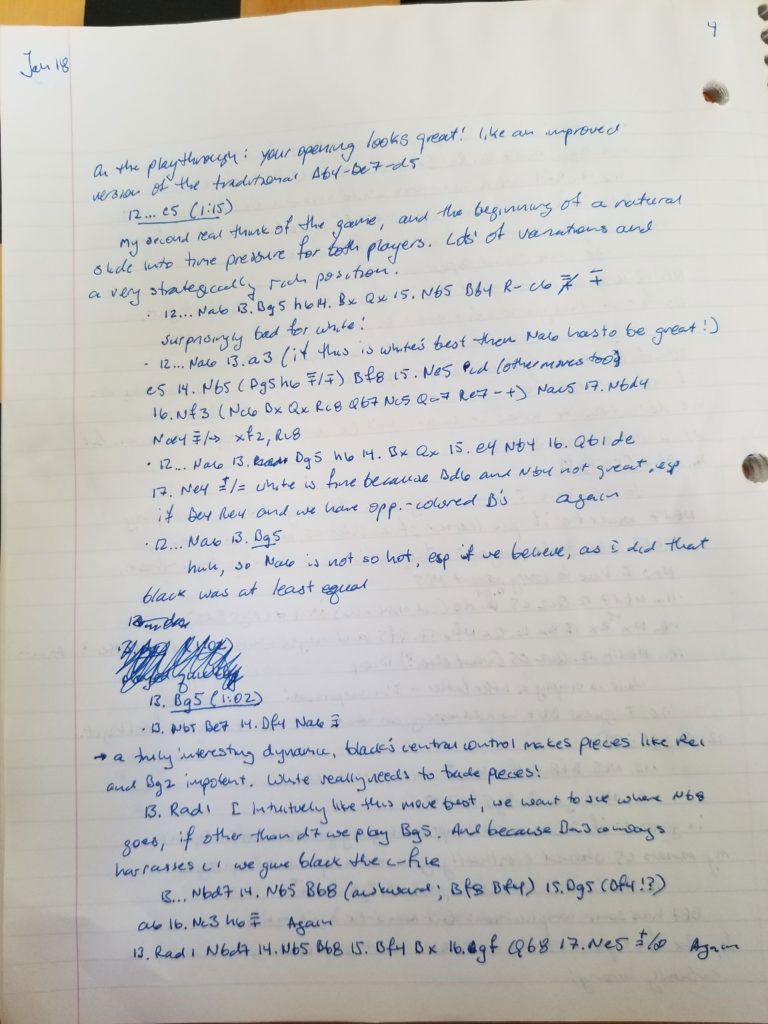 4
Jan 18
On the playthrough: your opening looks great! like an improved
version of the traditional Ab4-Be7-d5
12... e5 (1:15)
My second real think of the game, and the beginning of a natural
slide into time pressure for both players. Lots of variations and
a very strategically rich position.
· 12... Na6 13. Bg5 h6 14. Bx Qx 15. Nb5 Bb4 R-c6 ∓
surprisingly bad for white!
· 12... Na6 13. a3 (if this is white's best then Na6 has to be great!)
e5 14. Nb5 (Bg5 h6 ∓/∓) Bf8 15. Ne5 (other moves too)
16. Nf3 (Nc6 Bx Qx Rc8 Qb7 Nc5 Qa7 Re7 -+) Nac5 17. Nbd4
Nce4 ∓/→ xf2, Rc8
· 12... Na6 13. Bg5 h6 14. Bx Qx 15. e4 Nb4 16. Qb1 de
17. Ne4 ±/= white is fine because Bd6 and Nb4 not great, esp
if Be4 Re4 and we have opp.-colored B's again
· 12... Na6 13. Bg5
huh, so Na6 is not so hot, esp if we believe, as I did that
black was at least equal
13. Bg5 (1:02)
· 13. Nb5 Be7 14. Bf4 Na6 ∓
→ a truly interesting dynamic, black's central control makes pieces like Re1
and Bg2 impotent. White really needs to trade pieces!
13. Rad1 I intuitively like this move best, we want to see where Nb8
goes, if other than d7 we play Bg5. And because Ba3 always
harrasses c1 we give black the c-file
13... Nbd7 14. Nb5 Bb8 (awkward; Bf8 Bf4) 15. Bg5 (Bf4!?)
a6 16. Nc3 h6 ∓ Again
13. Rad1 Nbd7 14. Nb5 Bb8 15. Bf4 Bx 16. gf Qb8 17. Ne5 ±/∞ Again